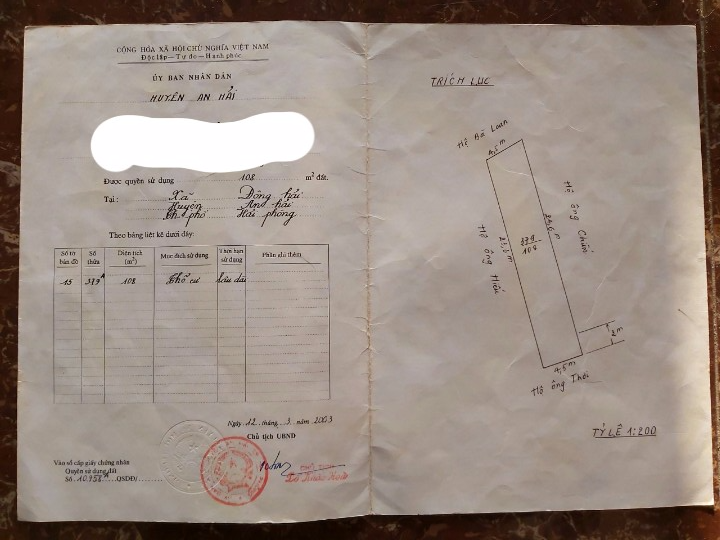 CỘNG HÒA XÃ HỘI CHỦ NGHĨA VIỆT NAM
Độc lập - Tự do - Hạnh phúc
ỦY BAN NHÂN DÂN
HUYỆN AN HẢI
Được quyền sử dụng 108 m² đất.
Tại: Xã Đông hải
Huyện An hải
Th phố Hải phòng
Theo bảng liệt kê dưới đây:
Số tờ bản đồ Số thửa Diện tích (m²) Mục đích sử dụng Thời hạn sử dụng Phần ghi thêm
15 379A 108 Thổ cư Lâu dài
Ngày 12 tháng 3 năm 2003
Chủ tịch UBND
Vào sổ cấp giấy chứng nhận
Quyền sử dụng đất
Số 10.956 QSDĐ/
TRÍCH LỤC
Hộ Bà Loan
4,5m
Hộ ông Hiếu
379
108
24,6m
4,5m
2m
Hộ ông Thới
TỶ LỆ 1:200